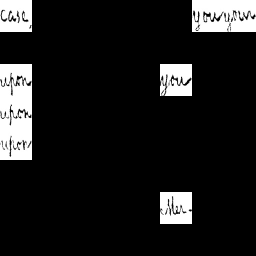 case, you your
upon you
upon
upon